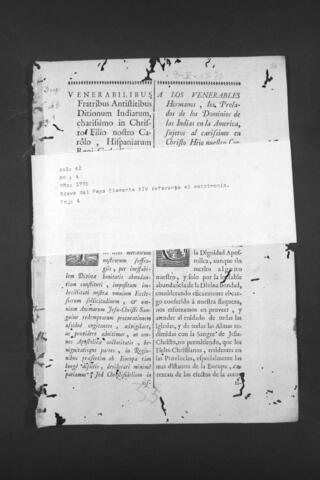 VENERABILIBUS
Fratribus Antistitibus
Ditionum Indiarum,
charissimo in Chris-
to Filio nostro Ca-
rolo, Hispaniarum
A LOS VENERABLES
Hermanos, los Prela-
dos de los Dominios de
las Indias en la America,
sujetos al carissimo en
Christo Hijo nuestro Car-
Vol: 62
Nº: 4
Año: 1770
Breve del Papa Clemente XIV referente al matrimonio.
Foj: 4
meritorum
nostrorum suffra-
giis, per ineffabi-
lem Divinæ bonitatis abundan-
tiam constituti, impositam im-
becillitati nostræ omnium Eccle-
siarum sollicitudinem, &
nium Animarum Jesu-Christi San-
guine redemptarum procurationem
Apostolicæ
benignitatisque partes, in Regio-
nibus præsertim ab Europa tam
longe dissitis, desiderari minime
patiamur. Sed Christifidelium in
la Dignidad Apos-
tolica, aunque sin
merito alguno
nuestro, y solo por la inefable
abundancia de la Divina Bondad,
considerando eficazmente el car-
go cometido à nuestra flaqueza,
nos esforzamos en proveer, y
atender al cuidado de todas las
Iglesias, y de todas las Almas re-
dimidas con la Sangre de Jesu-
Christo, no permitiendo, que los
Fieles Christianos, residentes en
las Provincias, especialmente las
mas distantes de la Europa, ca-
rezcan de los efectos de la auto-